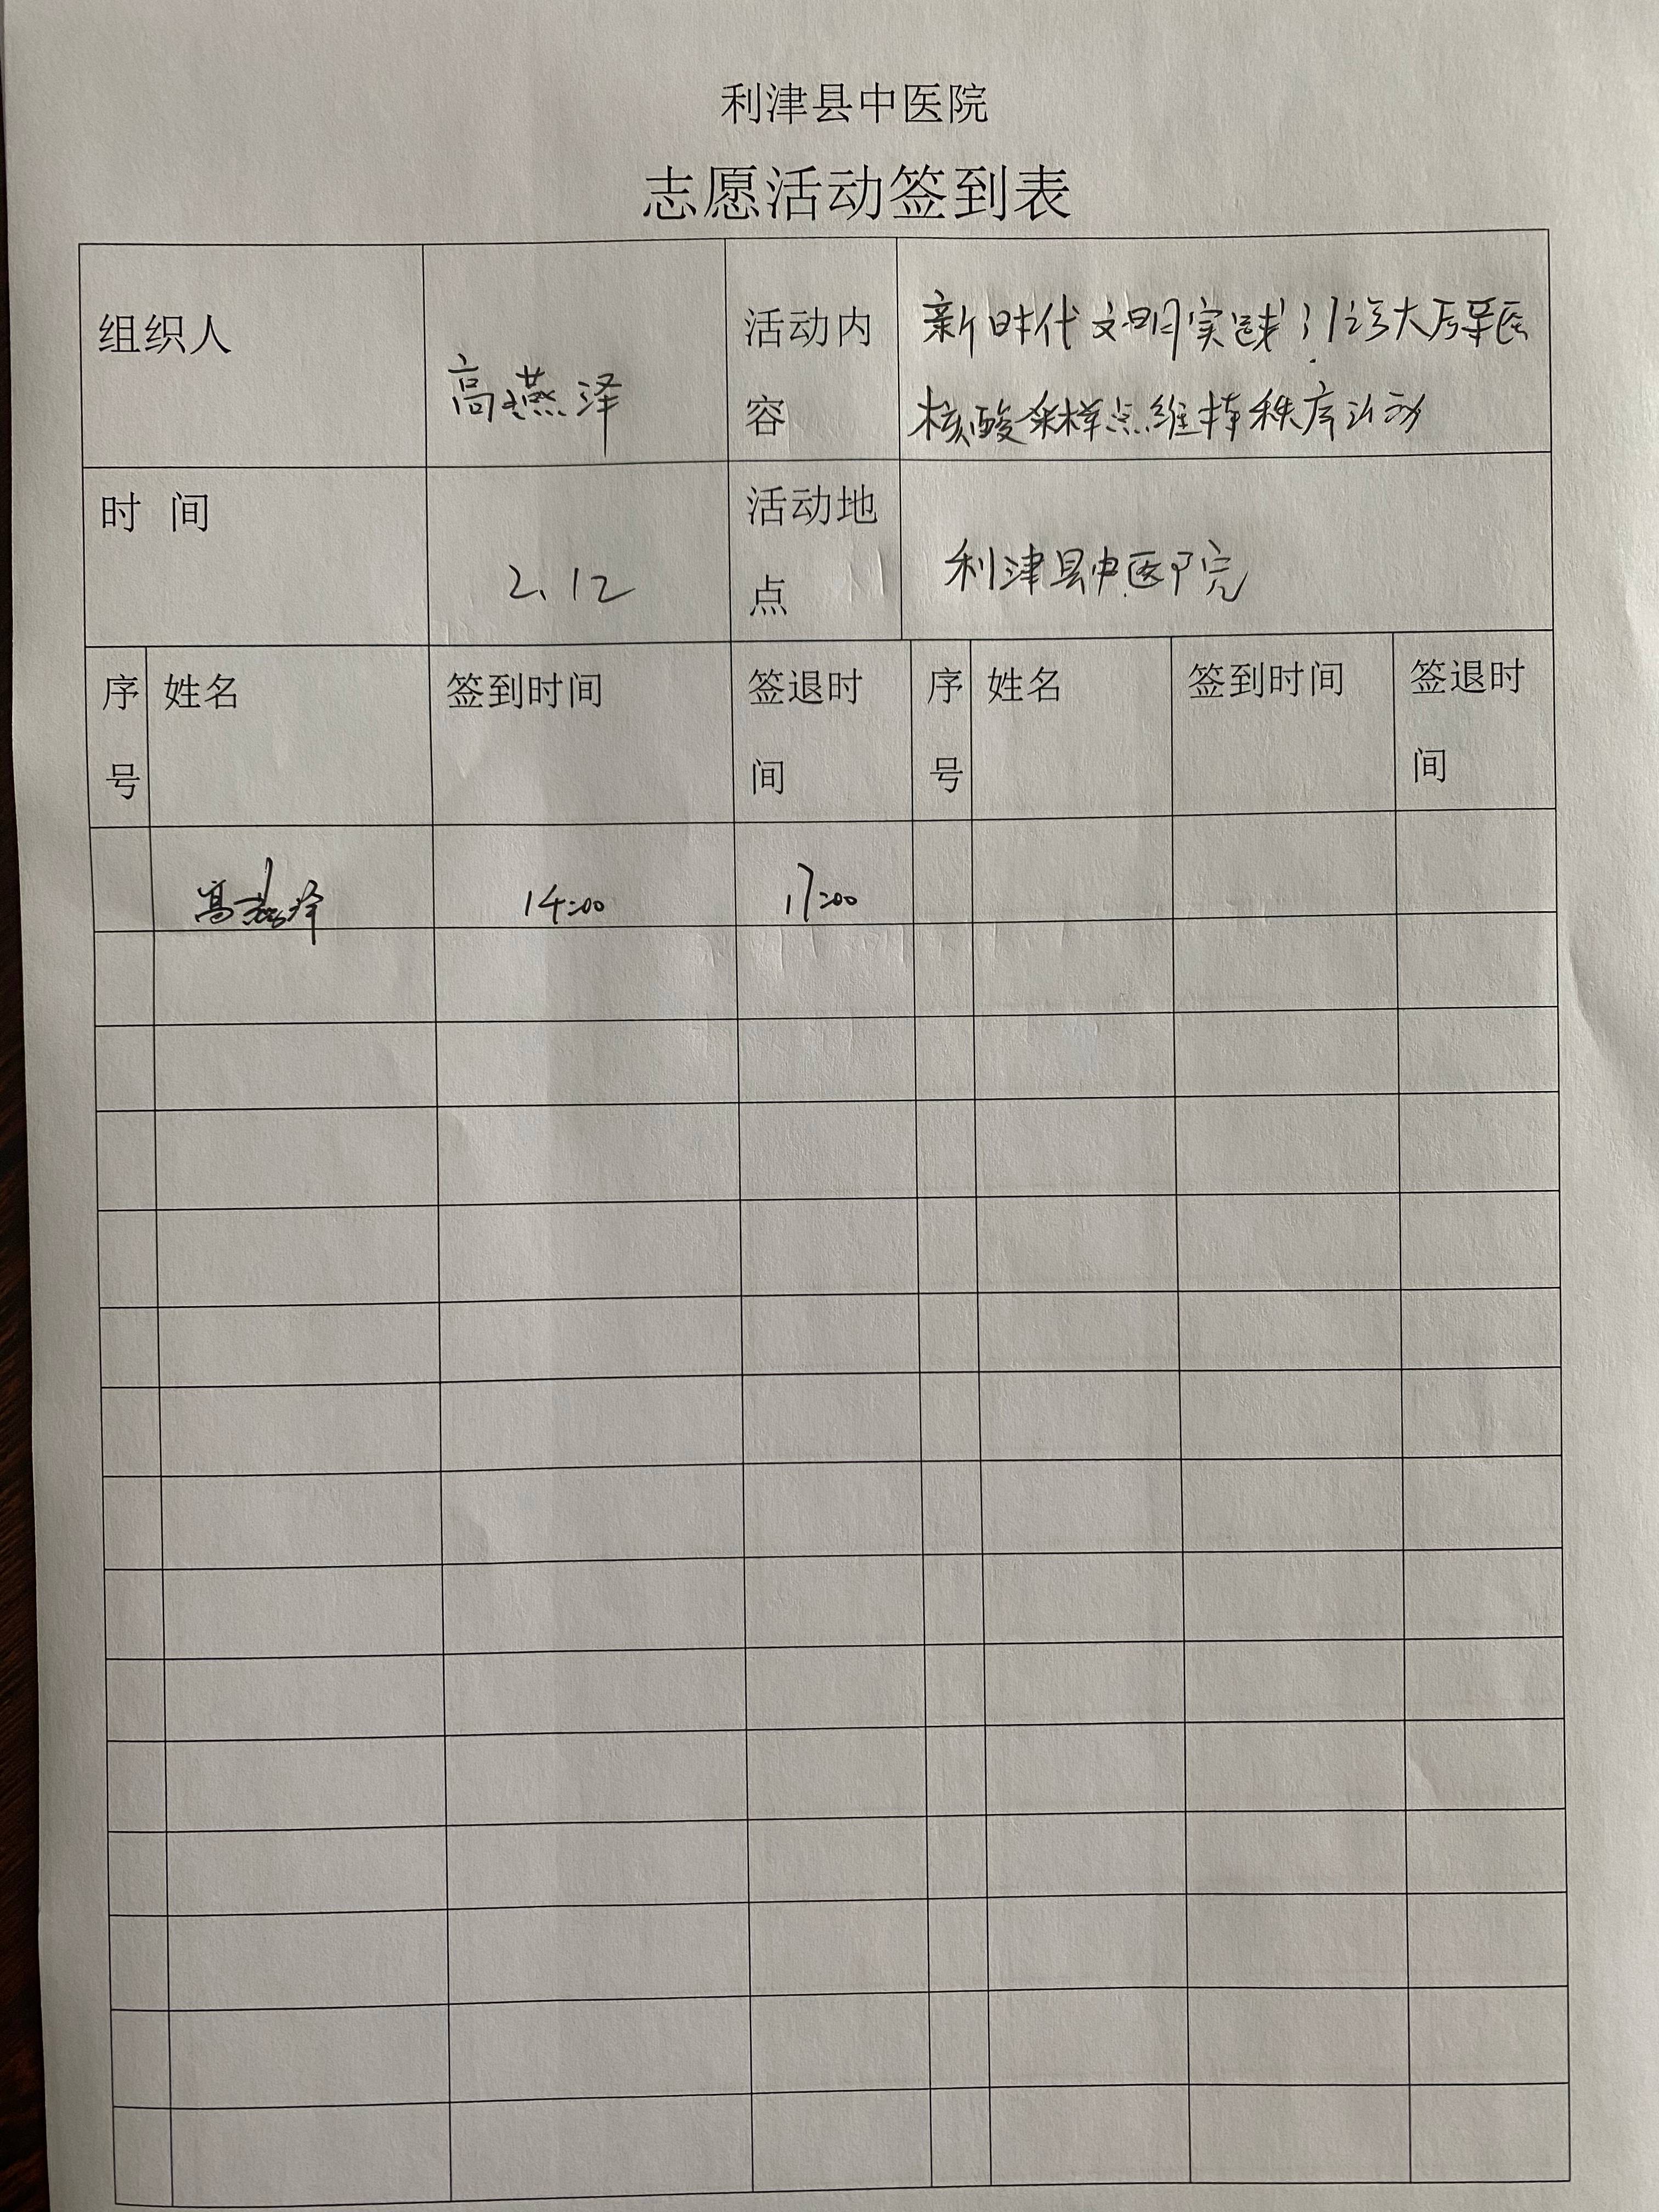 利津县中医院
志愿活动签到表
组织人 高燕泽 活动内容 新时代文明实践门诊大厅导医
核酸采样点维持秩序活动
时 间 2.12 活动地点 利津县中医院
序号 姓名 签到时间 签退时间 序号 姓名 签到时间 签退时间
高燕泽 14:00 17:00